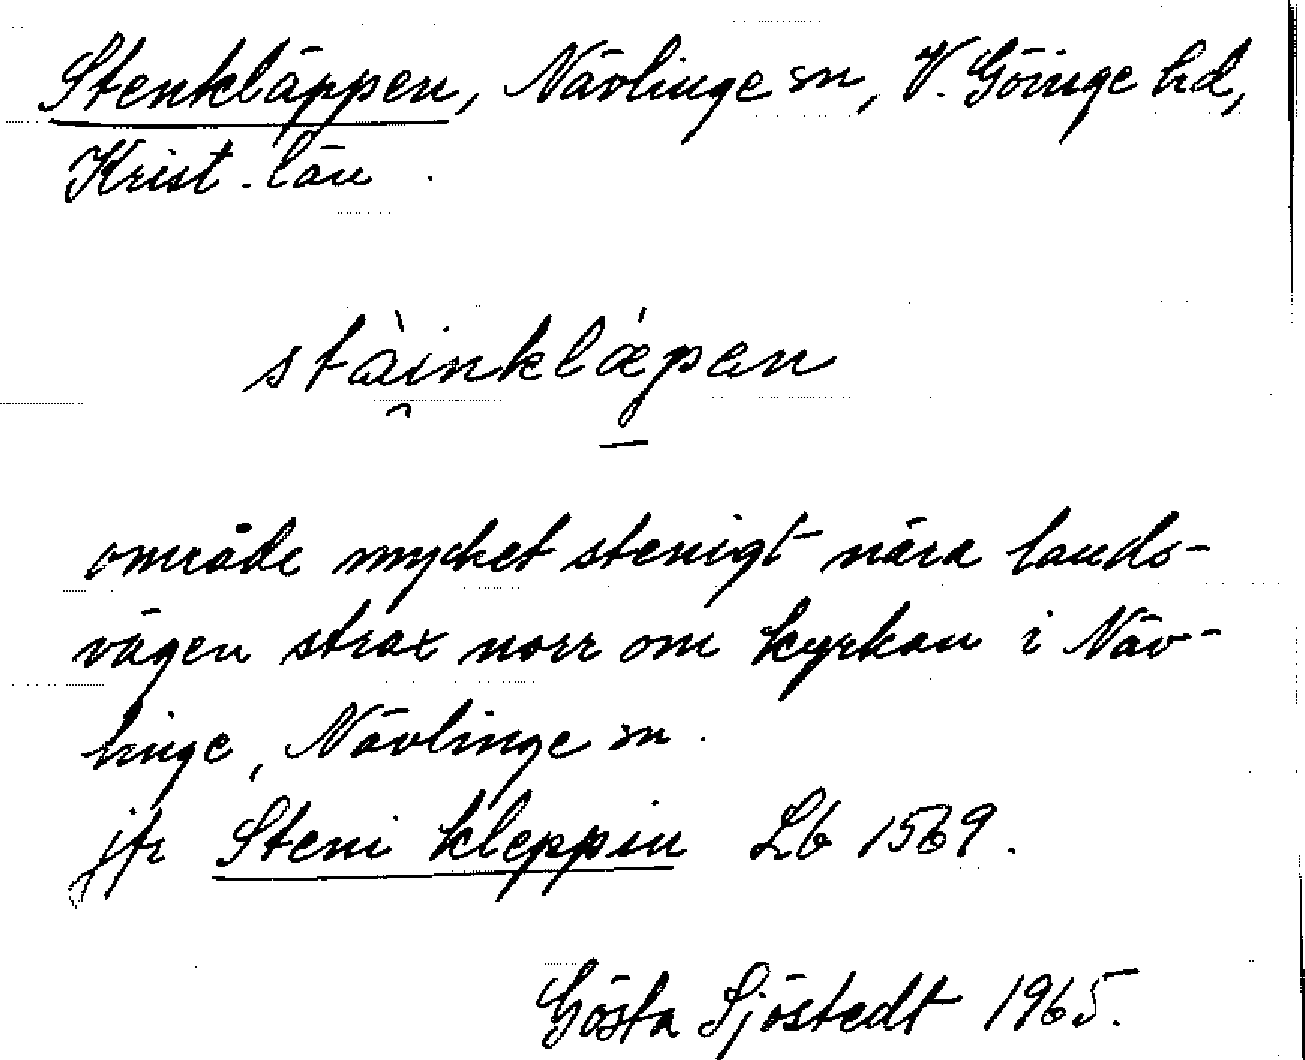 Stenkläppen, Nävlinge sn, V. Göinge hd,
Krist. län.
stàinklǽpan
område mycket stenigt nära lands-
vägen strax norr om kyrkan i Näv-
linge, Nävlinge sn.
jfr Steni kleppin Lb 1569.
Gösta Sjöstedt 1965.